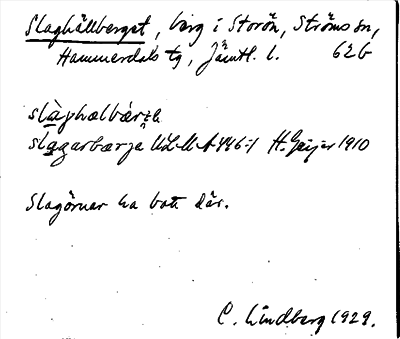 Slaghällberget, berg i Storön, Ströms sn,
Hammerdals tg, Jämtl. l. 62G
slàghælbær
slagarbærja ULMA 446:1 H. Geijer 1910
Slagörnar ha bott där.
C. Lindberg 1929.